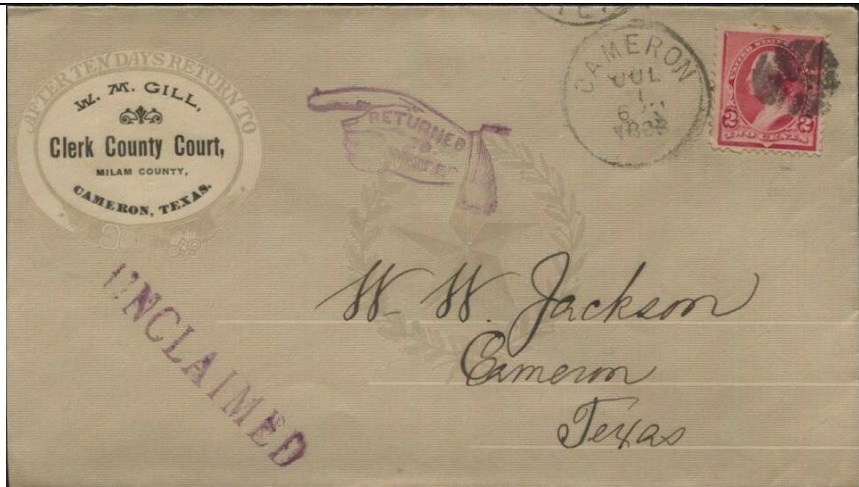 AFTER TEN DAYS RETURN TO
W. M. GILL,
Clerk County Court,
MILAM COUNTY,
CAMERON, TEXAS.
RETURNED
TO
CAMERON
JUL
1
6
UNITED STATES
2 2
TWO CENTS
UNCLAIMED
W. W. Jackson
Cameron
Texas